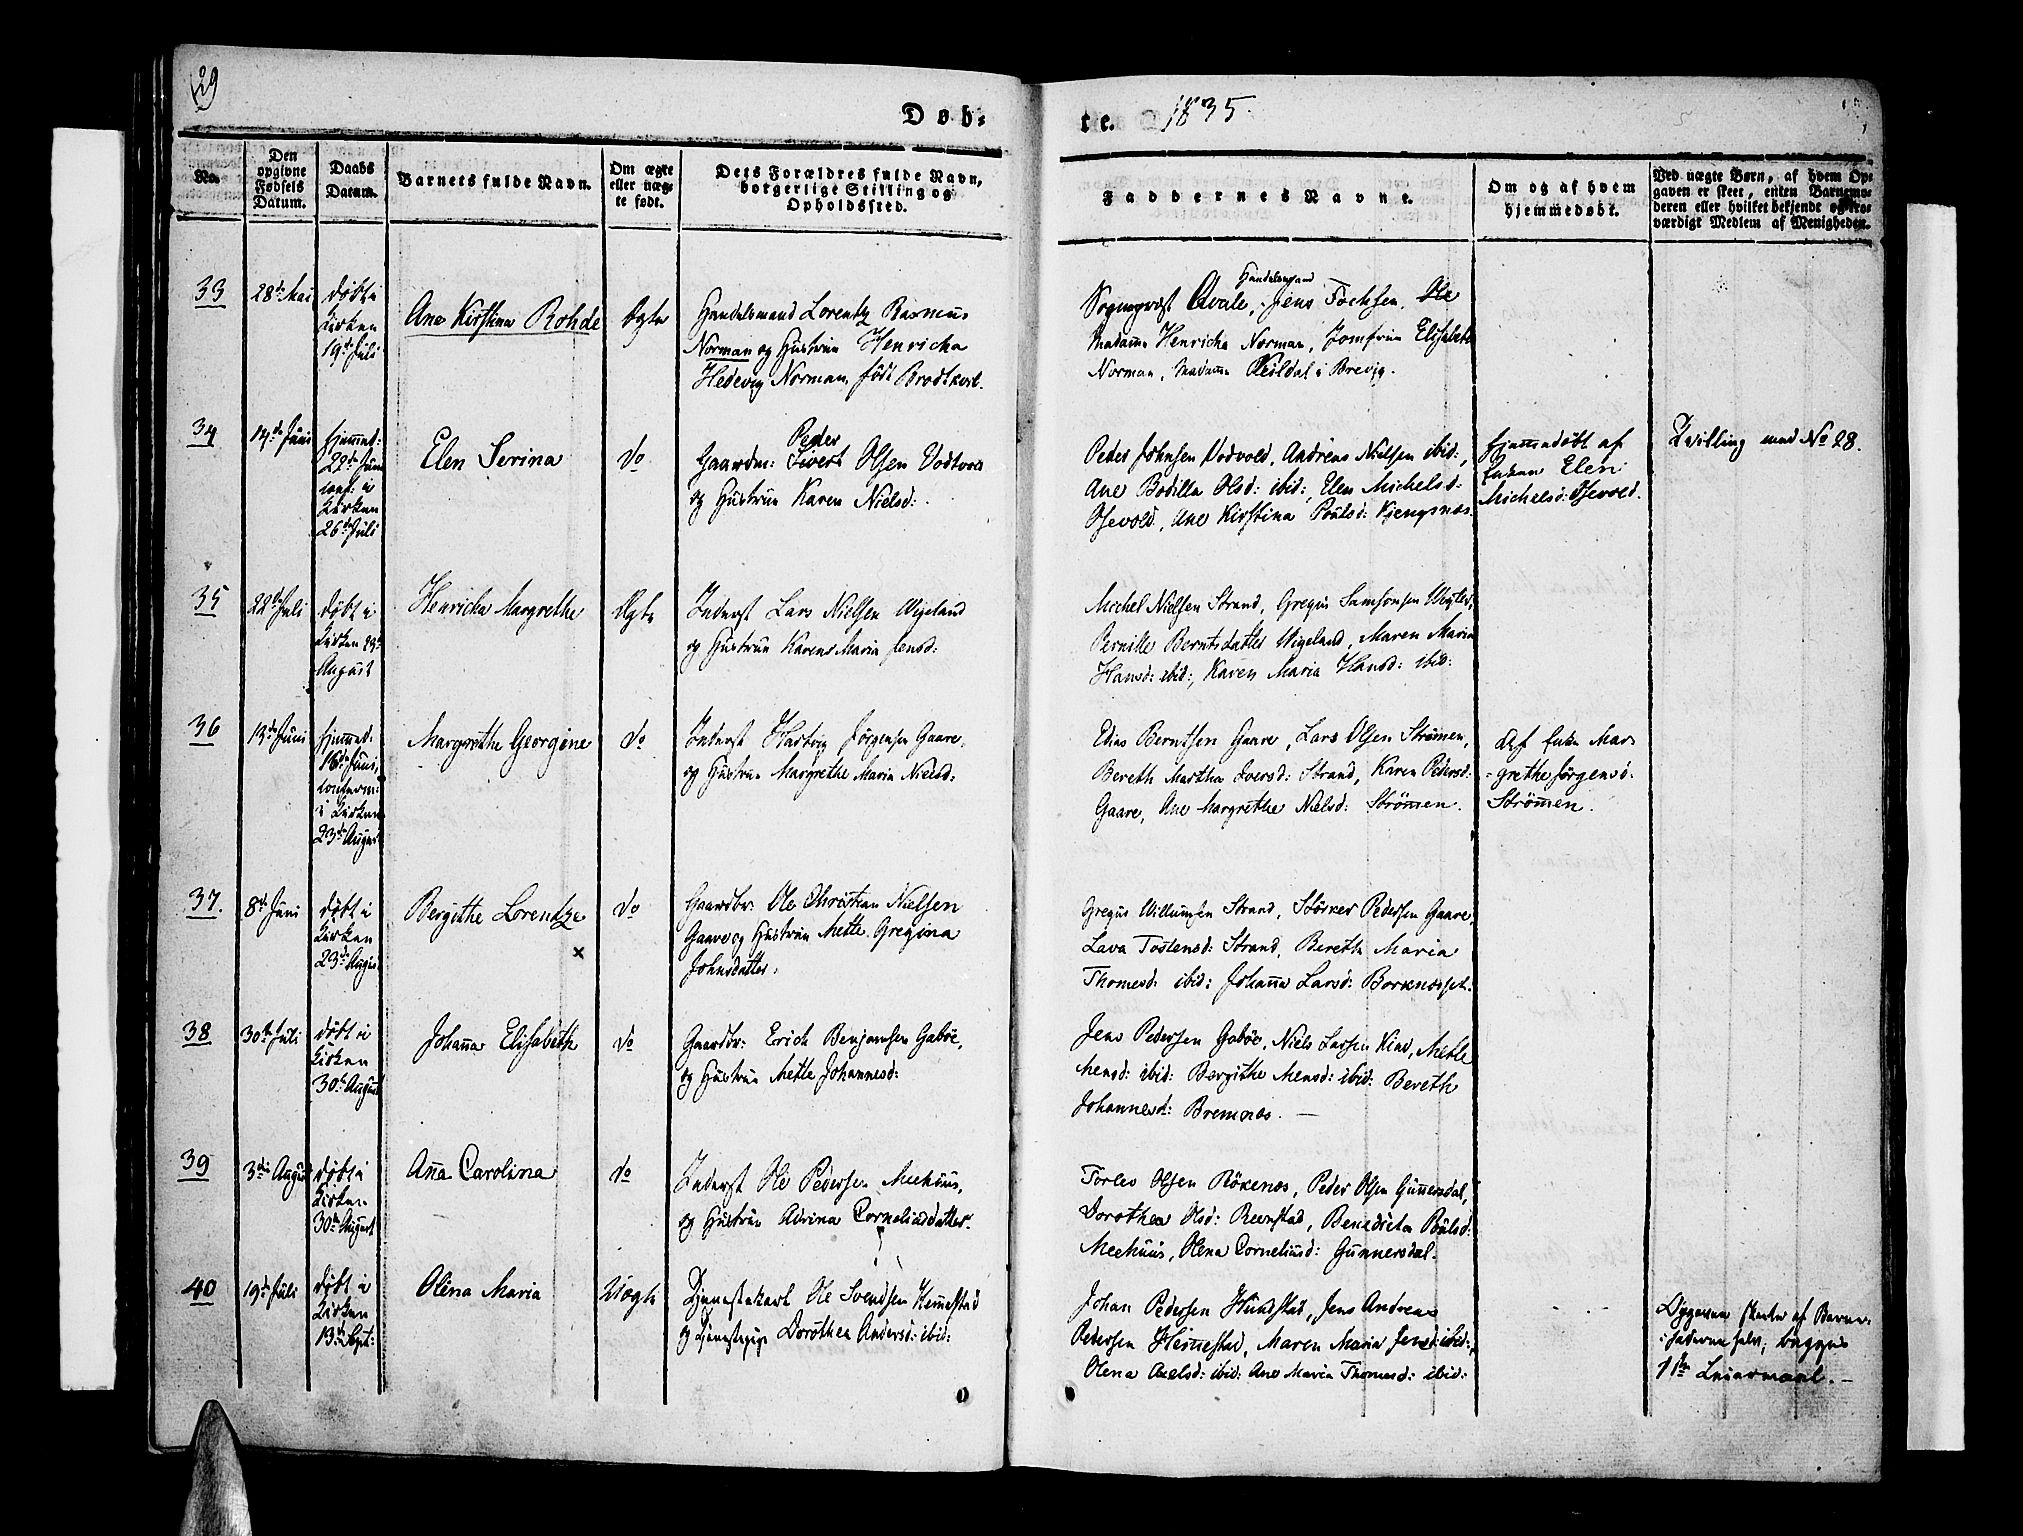 29
Døb=
te. 1835.
No.
Den opgivne Fødsels Datum.
Daabs Datum.
Barnets fulde Navn.
Om ægte eller uæg-te født.
Dets Forældres fulde Navn, borgerlige Stilling og Opholdssted.
Faddernes Navne.
Om og af hvem hjemmedøbt.
Ved uægte Børn, af hvem Op-
gaven er skeet, enten Barnemo-
deren eller hvilket bekjendt og tro-
værdigt Medlem af Menigheden.
33
28de Mai
døbt i
Kirken
19de Juli
Ane Kirstina Rohde
Ægte
Handelsmand Lorentz Rasmus
Norman og Hustrue Henricka
Hedevig Norman, født Brodtkorb.
Handelsmand
Sogneprest Qvale, Jens Fochsen,
Madame Henricka Norman, Jomfrue Elisabeth
Norman, Madame Qvildal i Brevig.
34
14de Juni
hjemmed:
22de Juni
conf: i
Kirken
26de Juli
Elen Serina
do
Peder
Gaardm: Sivert Olsen Vodtvold
og Hustrue Karen Nielsd:
Peder Johnsen Vodvold, Andreas Nielsen ibid:,
Ane Bodilla Olsd: ibid:, Elen Michelsd:
Osevold, Ane Kirstina Poulsd: Kjengsnæs
hjemmedøbt af
Enken Elen
Michelsd: Osevold.
Tvilling med No 28.
35
22de Juli
døbt i
Kirken 23de
August
Henricka Margrethe
Ægte
Inderst Lars Nielsen Wigeland
og Hustrue Karen Maria Jensd:
Michel Nielsen Strand, Gregus Samsonsen
Pernille Berntsdatter Wigeland, Maren Maria
Hansd: ibid:, Karen Maria Hansd: ibid:
36
13de Juni
hjemmed:
16de Juni,
conferm:
i Kirken
23de August
Margrethe Georgine
do
Inderst Hartvig Jørgensen Gaare,
og Hustrue Margrethe Maria Nielsd:
Edias Berntsen Gaare, Lars Olsen Strømen,
Bereth Martha Iversd: Strand, Karen Pedersd:
Gaare, Ane Margrethe Nielsd: Strømmen.
Af Enke Mar-
grethe Jørgensd.
Strømmen.
37.
8de Juni
døbt i
Kirken
23de August
Bergithe Lorentze
×
do
Gaardbr: Ole Christian Nielsen
Gaare og Hustrue Mette Gregina
Johnsdatter.
Gregus Willumsen Strand, Størker Pedersen Gaare,
Lava Tostensd: Strand, Bereth Maria
Thomesd: ibid: Johanna Larsd: Borknæsset.
38
30te Juli
døbt i
Kirken
30te August
Johanna Elisabeth
do
Gaardbr: Erich Benjamsen Gabøe,
og Hustrue Mette Johannesd:
Jens Pedersen Gabøe, Niels Larsen Kind, Mette
Mensd: ibid: Bergithe Mensd: ibid: Bereth
Johannesd: Bremnæs.
39
3die August
døbt i
Kirken
30te August
Anna Carolina
do
Inderst Ole Pedersen Meehuus,
og Hustrue Adrina Corneliusdatter.
Torlev Olsen Røkenæs, Peder Olsen Gunnersdal,
Dorothea Olsd: Reenstad, Benedicta Poulsd:
Meehuus, Olena Corneliusd: Gunnersdal.
40
19de Juli
døbt i
Kirken
13de Sept:
Olina Maria
Uægte
Tjenestekarl Ole Svendsen Hemmestad
og Tjenestepige Dorothea Andersd: ibid:
Johan Pedersen Hundstad, Jens Andreas
Pedersen Hemmestad, Maren Maria Jensd: ibid:,
Olena Axelsd: ibid: Ane Maria Thomesd: ibid:
Opgaven skeede af Barne-
faderen selv; begges
1ste Leiermaal.